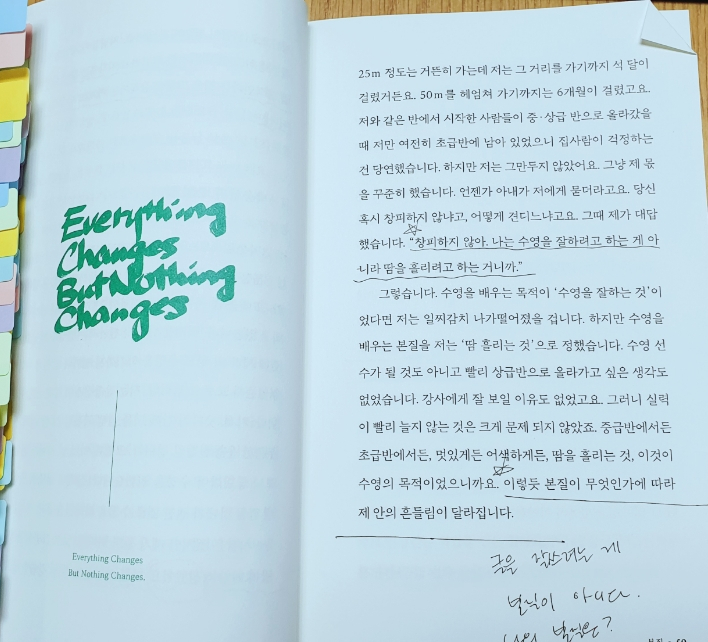 Everything
Changes
But Nothing
Changes
Everything Changes
But Nothing Changes.
25m 정도는 거뜬히 가는데 저는 그 거리를 가기까지 석 달이
걸렸거든요. 50m를 헤엄쳐 가기까지는 6개월이 걸렸고요.
저와 같은 반에서 시작한 사람들이 중·상급 반으로 올라갔을
때 저만 여전히 초급반에 남아 있었으니 집사람이 걱정하는
건 당연했습니다. 하지만 저는 그만두지 않았어요. 그냥 제 몫
을 꾸준히 했습니다. 언젠가 아내가 저에게 묻더라고요. 당신
혹시 창피하지 않냐고, 어떻게 견디느냐고요. 그때 제가 대답
했습니다. “창피하지 않아. 나는 수영을 잘하려고 하는 게 아
니라 땀을 흘리려고 하는 거니까.”
그렇습니다. 수영을 배우는 목적이 ‘수영을 잘하는 것’이
었다면 저는 일찌감치 나가떨어졌을 겁니다. 하지만 수영을
배우는 본질을 저는 ‘땀 흘리는 것’으로 정했습니다. 수영 선
수가 될 것도 아니고 빨리 상급반으로 올라가고 싶은 생각도
없었습니다. 강사에게 잘 보일 이유도 없었고요. 그러니 실력
이 빨리 늘지 않는 것은 크게 문제 되지 않았죠. 중급반에서든
초급반에서든, 멋있게든 어색하게든, 땀을 흘리는 것, 이것이
수영의 목적이었으니까요. 이렇듯 본질이 무엇인가에 따라
제 안의 흔들림이 달라집니다.
글을 잘쓰려는 게
본질이 아니다.
나의 본질은?